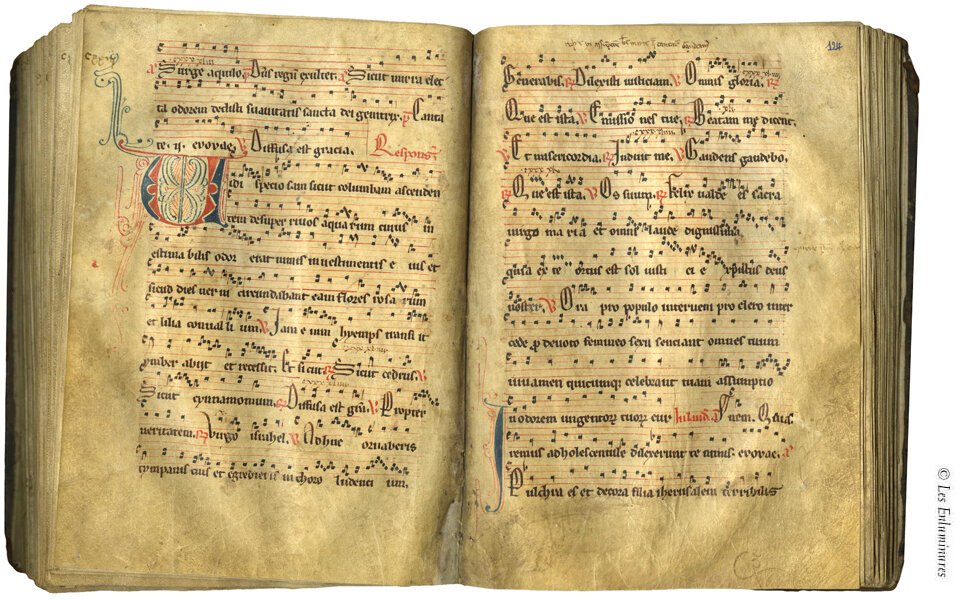 Surge aquilo. Dās regnū exultet. Sicut mirra elec
ta odorem dedisti suavitatis sancta dei genitrix. Canta
te. ij. evovae. Diffusa est gracia. Respons
Vidi speciosam sicut columbam ascenden
tem desuper rivos aquarum cuius in
estimabilis odor erat nimis in vestimentis eius et
sicud dies verni circundabant eam flores rosarum
et lilia convallium. Jam enim hyemps transiit
ymber abiit et recessit. Et sicut. Sicut cedrus.
Sicut cynnamomum. Diffusa est grā. Propter
veritatem. Virgo israhel. Adhuc ornaberis
tympanis tuis et egredieris in choro ludencium.
124
Generabit. Dilexisti iusticiam. Omnis gloria.
Que est ista. Emissio nes tue. Beatam me dicent.
Et misericordia. Induit me. Gaudens gaudebo.
Que est ista. Os suum. Felix valde es sacra
virgo maria et omni laude dignissima
quia ex te ortus est sol iusticie xpistus deus
noster. Ora pro populo interveni pro clero inter
cede p devoto femineo sexu senciant omnes tuum
iuvamen quicumq; celebrant tuam assumptio
nem.
In odorem ungentorū tuorū cur
remus adholescentule dilexerunt te nimis. evovae.
Pulchra es et decora filia iherusalem terribilis
© Les Enluminures